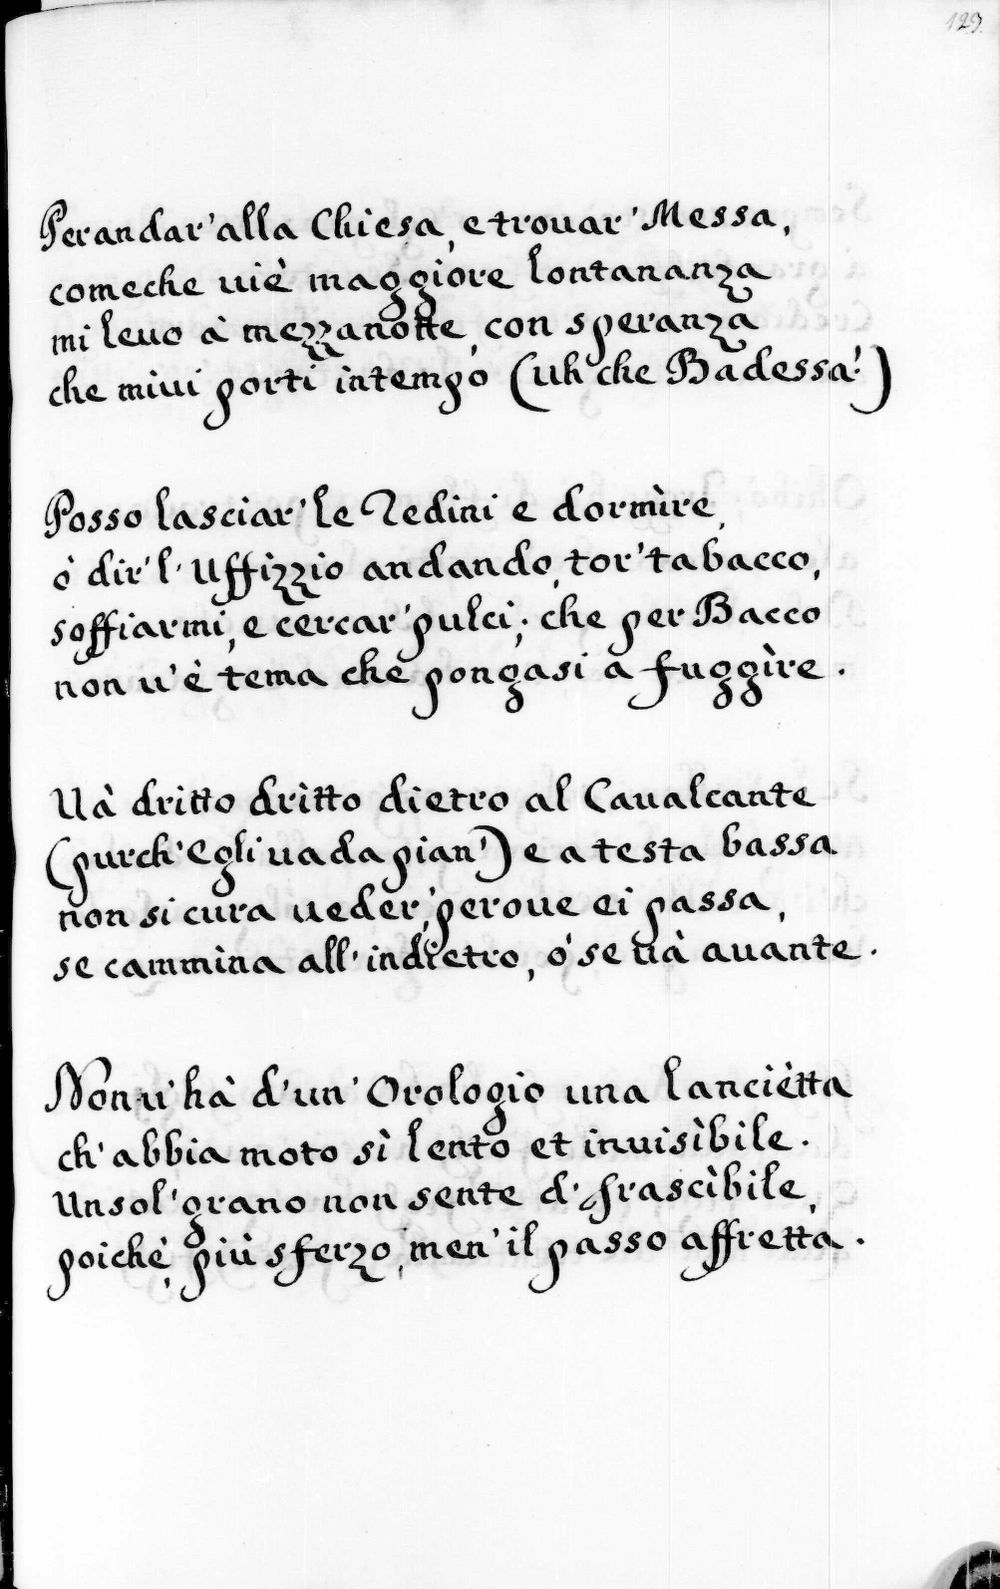 129.
Per andar' alla Chiesa, e trouar' Messa,
come che uiè maggiore lontananza
mi leuo à mezzanotte, con speranza
che miui porti in tempo (uh che Badessa!)
Posso lasciar' le Redini e dormìre,
ò dir' l' Uffizzio andando, tor' tabacco,
soffiarmi, e cercar' pulci; che per Bacco
non u'è tema che pongasi a fuggìre.
Uà dritto drìtto dietro al Caualcante
(purch' Egli uada pian') e a testa bassa
non si cura ueder', per oue ei passa,
se cammìna all' indietro, ò se uà auante.
Non u' hà d' un' Orologio una lanciètta
ch' abbia moto sì lento et inuisìbile.
Un sol' grano non sente d' frascìbile,
poichè, più sferzo, men' il passo affretta.